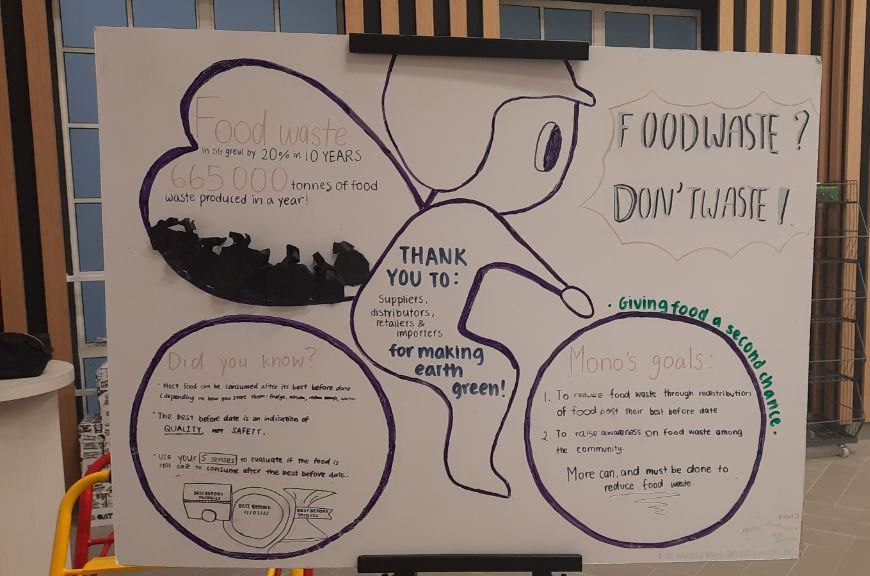 Food waste
in SG grew by 20% in 10 YEARS
665 000 tonnes of food
waste produced in a year!
FOODWASTE?
DON'TWASTE!
THANK
YOU TO:
Suppliers,
distributors,
retailers &
importers
for making
earth
green!
Did you know?
• Most food can be consumed after its best before date
(depending on how you store them: fridge,
• The best before date is an indication of
QUALITY, not SAFETY.
• Use your 5 senses to evaluate if the food is
still safe to consume after the best before date.
BEST BEFORE:
BEST BEFORE:
BEST BEFORE
• Giving food a second chance.
Mono's goals:
1. To reduce food waste through redistribution
of food past their best before date
2. To raise awareness on food waste among
the community.
More can, and must be done to
reduce food waste